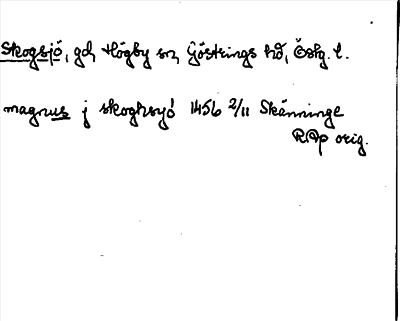 Skogsjö, gd, Högby sn, Göstrings hd, Östg. l.
magnus j skoghsyö 1456 2/11 Skänninge
RAp orig.